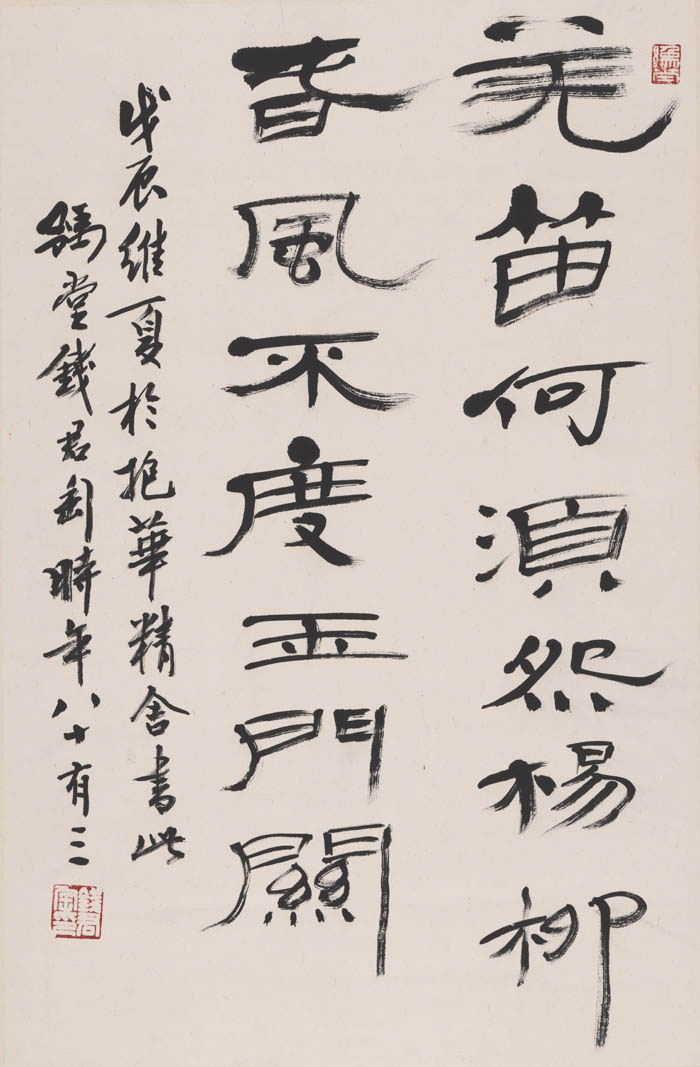 羌笛何湏怨楊柳
春風不度玉門關
戊辰維夏於抱華精舍書此
豫堂錢君匋時年八十有三